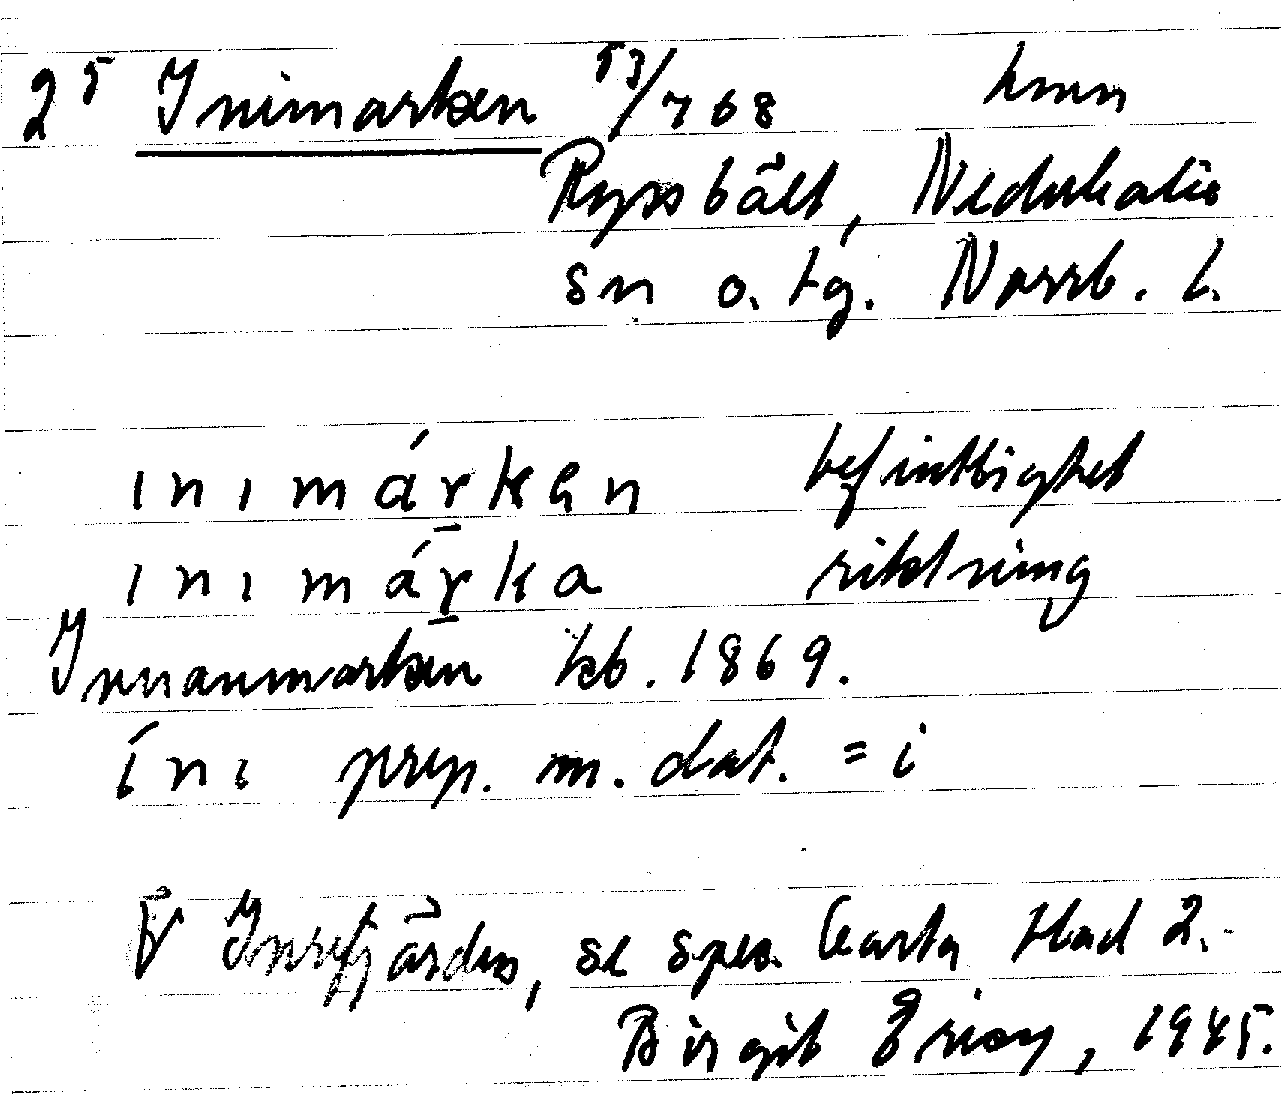 25 Inimarken 53/768 hmn
Ryssbält, Nederkalix
sn o. tg. Norrb. l.
ınımárkən befintlighet
ınımárka riktning
Innanmarken kb. 1869.
ínı prep. m. dat. = i
V Inrefjärden, se spec. karta blad 2.
Birgit, 1945.